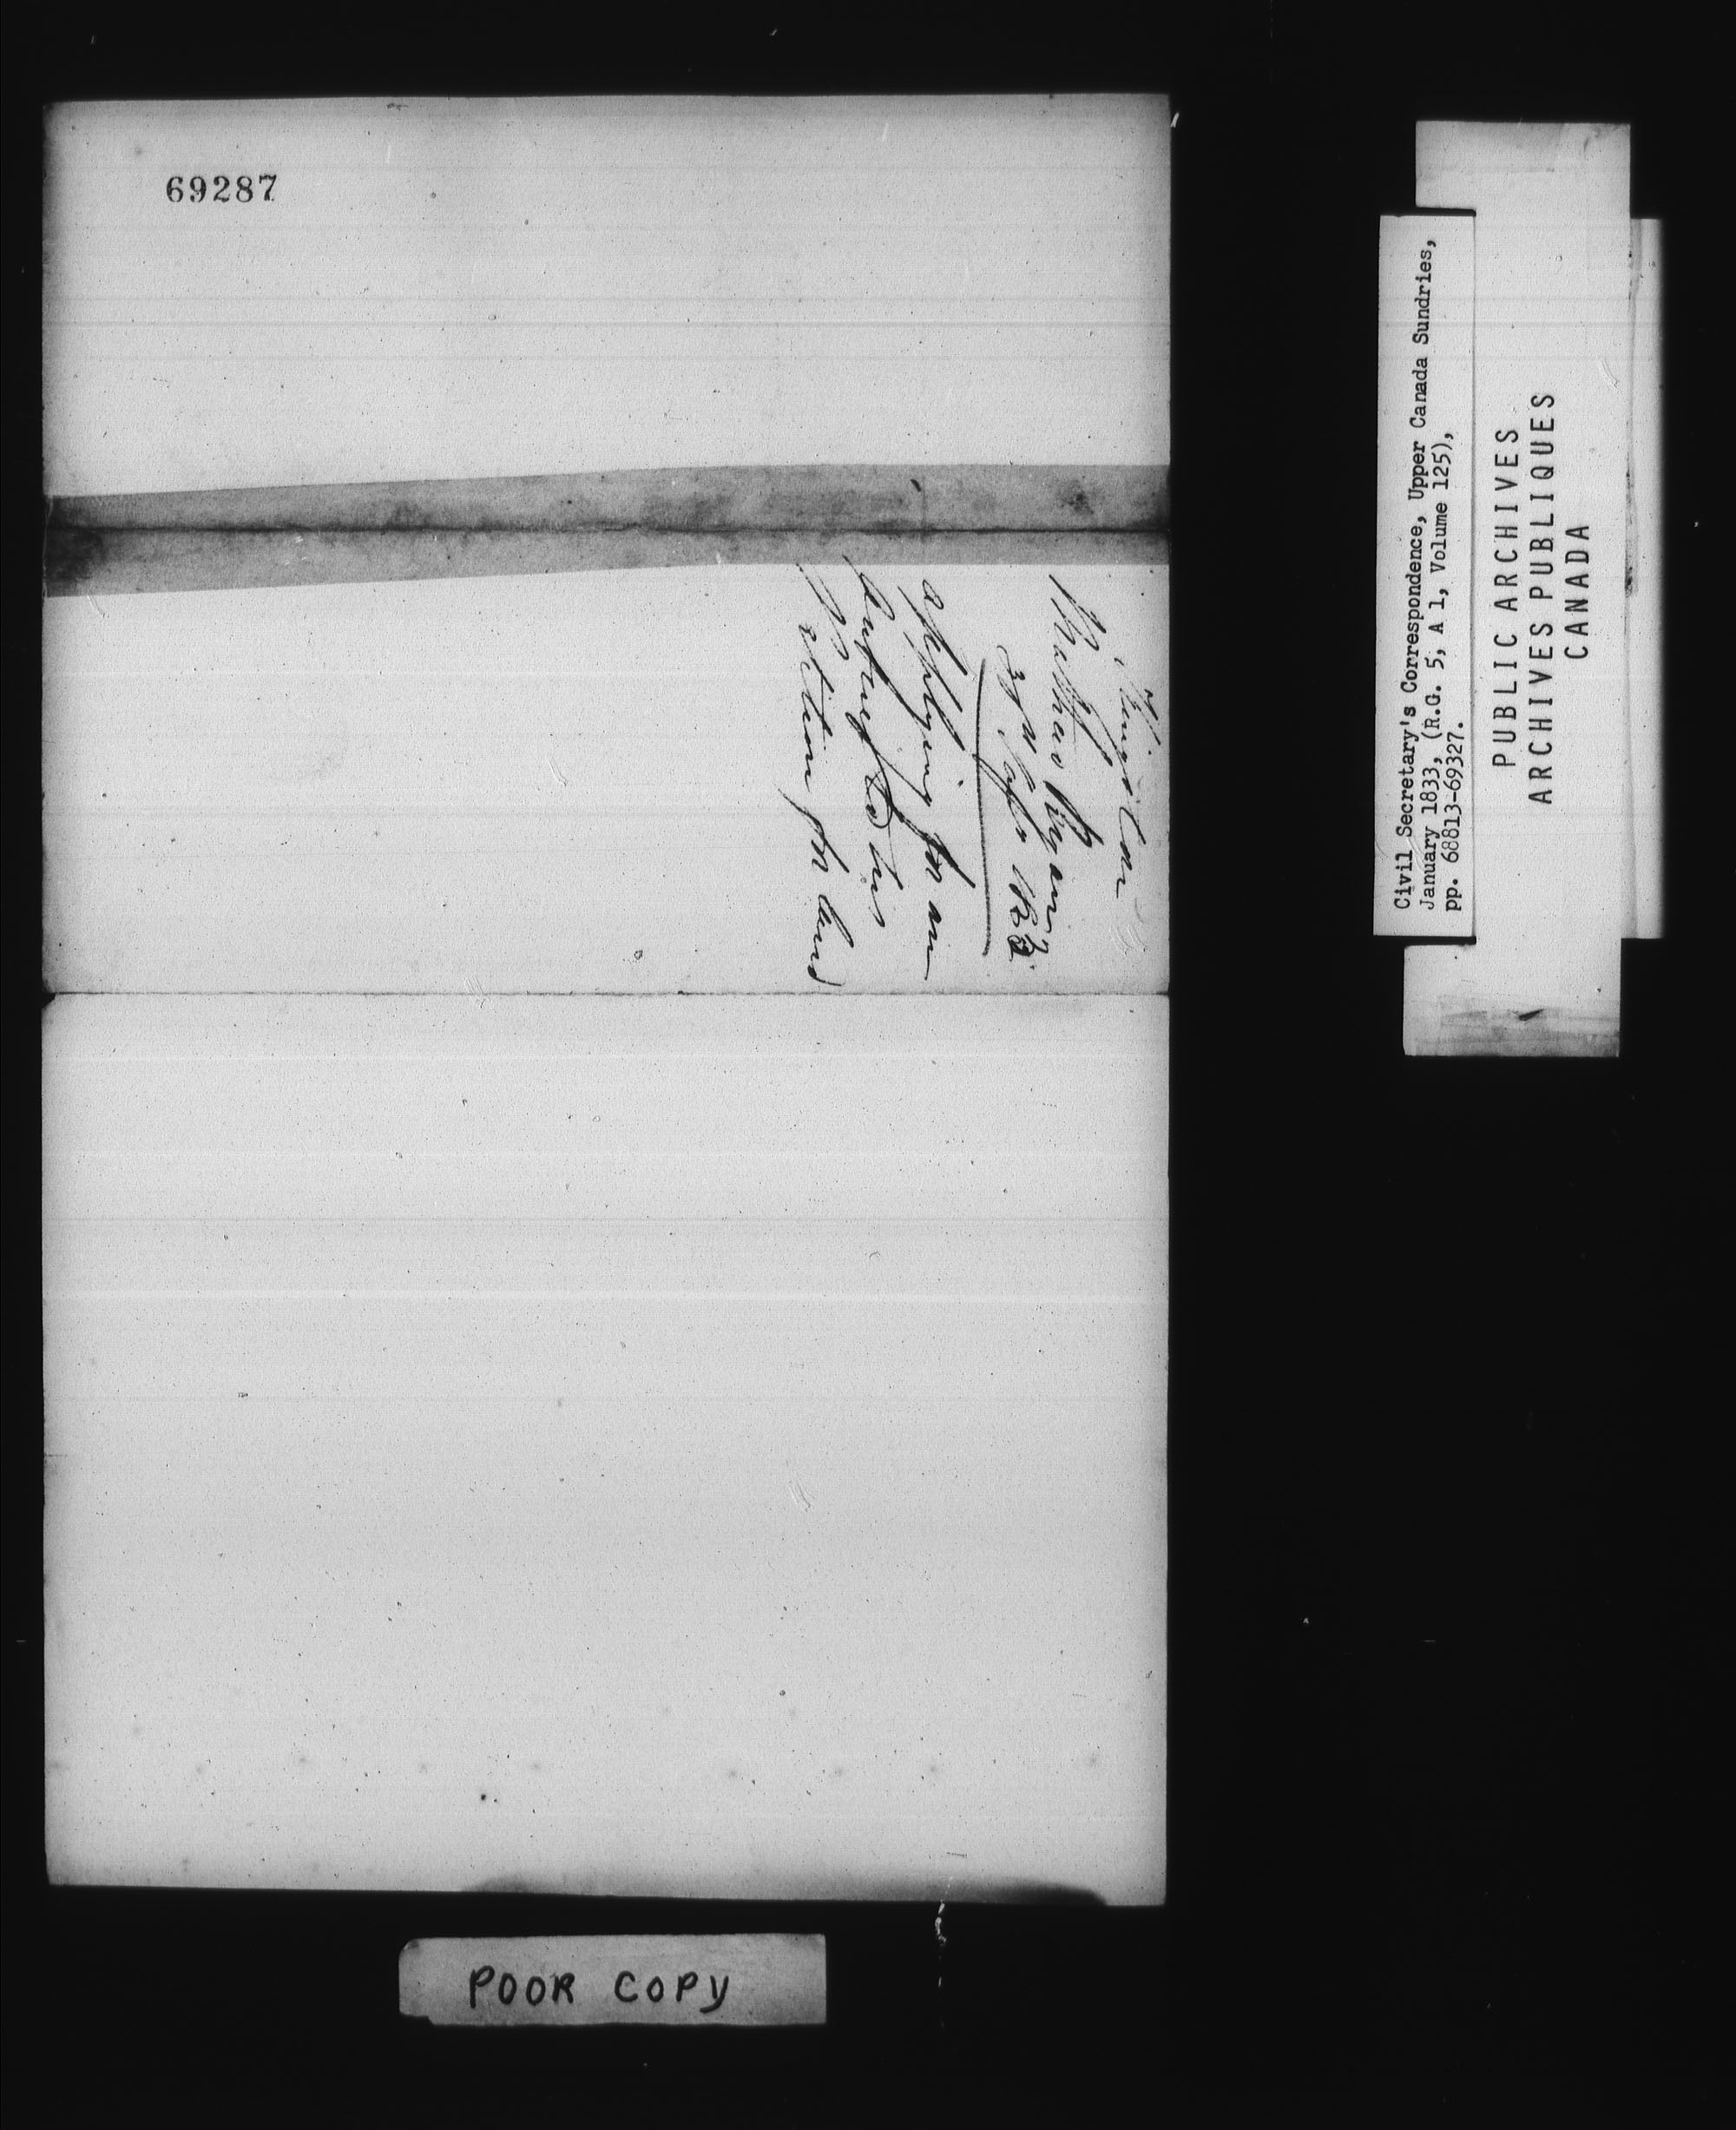 69287
Kingston
Mathew Ryan
1833
applying for an
answer to his
Petition for land
Civil Secretary's Correspondence, Upper Canada Sundries,
January 1833, (R.G. 5, A 1, Volume 125),
pp. 68813-69327.
PUBLIC ARCHIVES
ARCHIVES PUBLIQUES
CANADA
POOR COPY